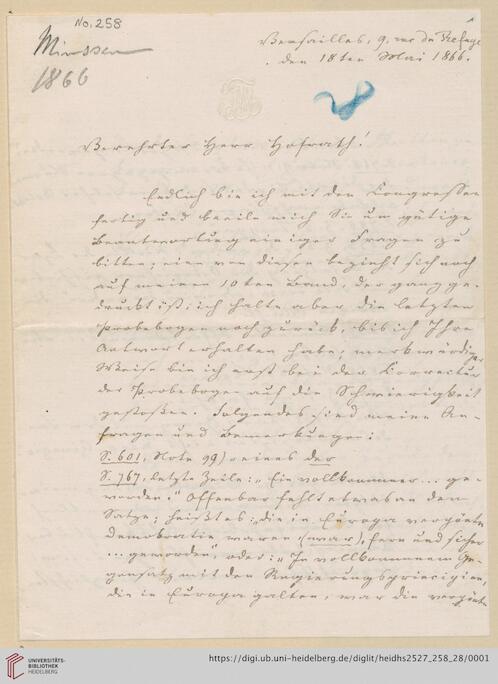 No. 258
Minssen
1866
Versailles, 9, rue du Refuge
den 18ten Mai 1866.
Verehrter Herr Hofrath!
Endlich bin ich mit den Congressen
fertig und beeile mich Sie um gütige
Beantwortung einiger Fragen zu
bitten; eine von diesen bezieht sich noch
auf meinen 10ten Band, der ganz ge-
druckt ist; ich halte aber die letzten
Probebogen noch zurück, bis ich Ihre
Antwort erhalten habe; merkwürdiger
Weise bin ich erst bei der Correctur
der Probebogen auf die Schwierigkeit
gestoßen. Folgendes sind meine An-
fragen und Bemerkungen:
S. 601, Note 99) eines der
S. 767, letzte Zeile: „Ein vollkommener ... ge-
worden." Offenbar fehlt etwas an dem
Satze; heißt es: „die in Europa
Demokratie waren (war), fern und sicher
... geworden" oder: „In vollkommenem Ge-
gensatz mit den Regierungsprincipien,
die in Europa galten, war die
https://digi.ub.uni-heidelberg.de/diglit/heidhs2527_258_28/0001
UNIVERSITÄTS-
BIBLIOTHEK
HEIDELBERG